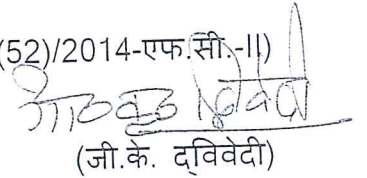 (52)/2014-एफ.सी.-II)
(जी.के. द्विवेदी)